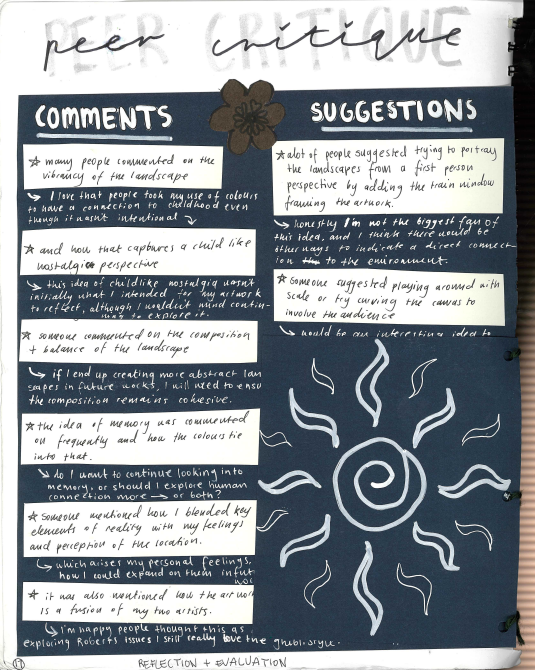 PEER CRITIQUE
peer critique
COMMENTS
☆ many people commented on the
vibrancy of the landscape
↳ I love that people took my use of colours
to have a connection to childhood even
though it wasn't intentional ↴
☆ and how that captures a child like
nostalgia perspective
↳ this idea of childlike nostalgia wasn't
initially what I intended for my artwork
to reflect, although I wouldn't mind contin-
uing to explore it.
☆ someone commented on the composition
+ balance of the landscape
↳ if I end up creating more abstract lan
scapes in future works, I will need to ensu
the composition remains cohesive.
☆ the idea of memory was commented
on frequently and how the colours tie
into that.
↳ do I want to continue looking into
memory, or should I explore human
connection more → or both?
☆ someone mentioned how I blended key
elements of reality with my feelings
and perception of the location.
↳ which arises my personal feelings,
how I could expand on them in fut
wor
☆ it was also mentioned how the artwor
is a fusion of my two artists.
↳ I'm happy people thought this as
exploring Roberts issues I still really love the ghibli style.
SUGGESTIONS
☆ alot of people suggested trying to portray
the landscapes from a first person
perspective by adding the train window
framing the artwork.
↳ honestly I'm not the biggest fan of
this idea, and I think there would be
other ways to indicate a direct connect-
ion to the environment.
☆ someone suggested playing around with
scale or try curving the canvas to
involve the audience
↳ would be an interesting idea to
REFLECTION + EVALUATION